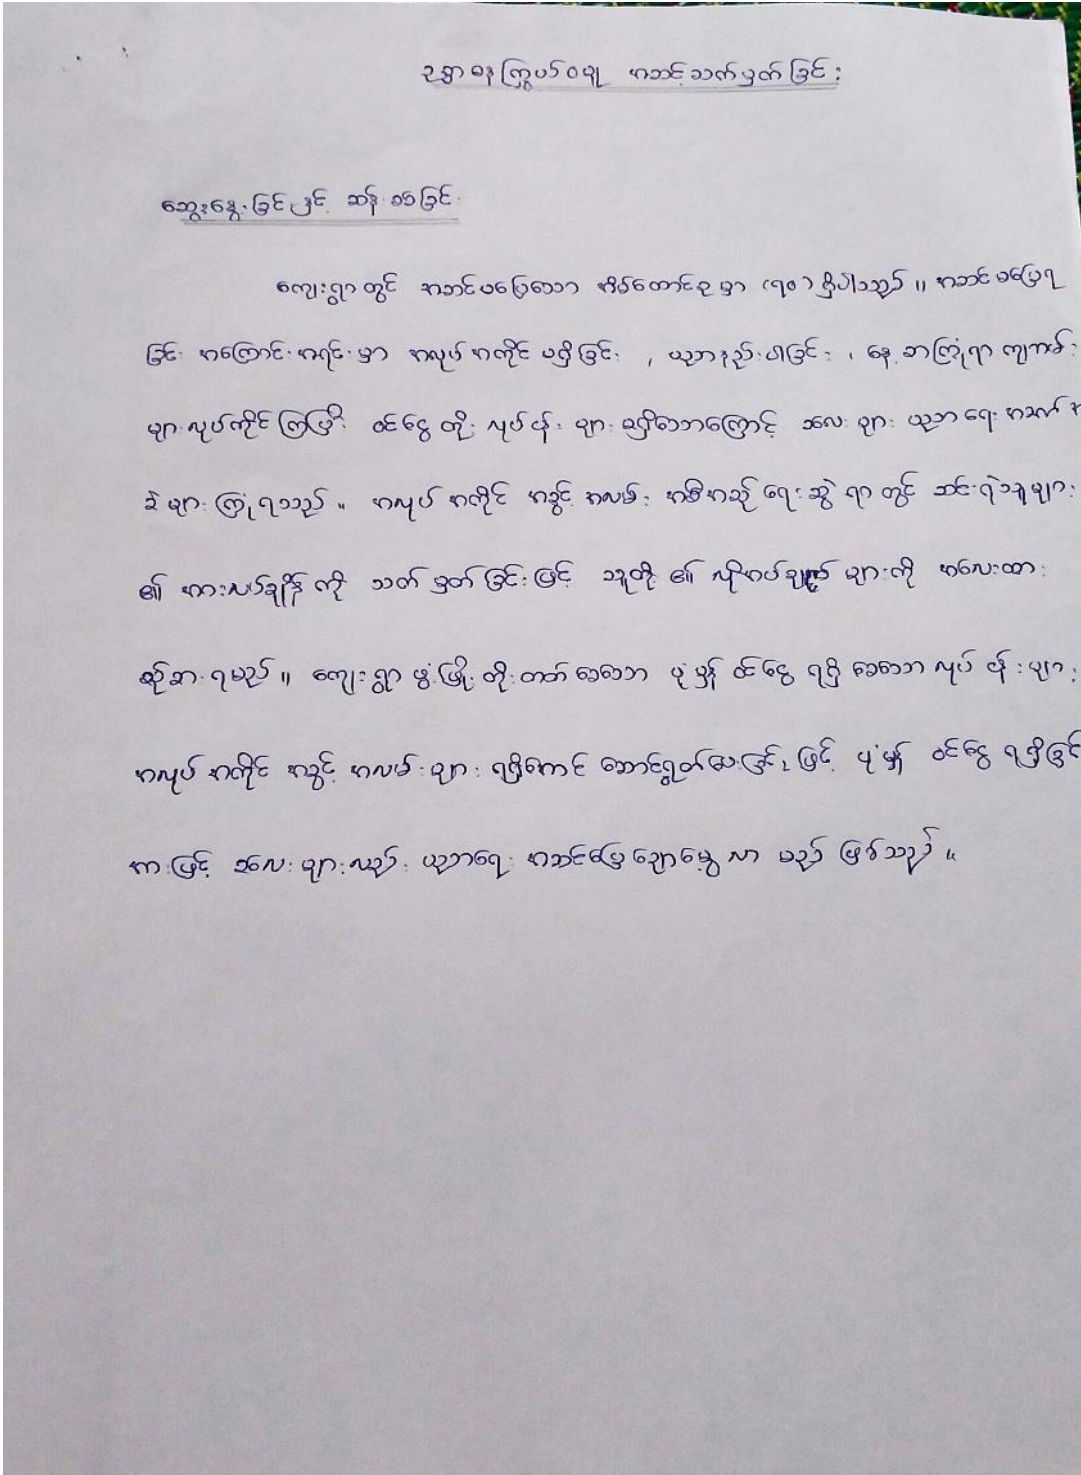 ဥစ္စာဓနကြွယ်ဝမှု အဆင့်သတ်မှတ်ခြင်း
ဆွေးနွေးခြင်းနှင့် ဆန်းစစ်ခြင်း
ကျေးရွာတွင် အဆင်မပြေသော အိမ်ထောင်စုမှာ (၅၀) ရှိပါသည်။ အဆင်မပြေရ
ခြင်း အကြောင်းအရင်းမှာ အလုပ်အကိုင် မရှိခြင်း ၊ ပညာနည်းပါးခြင်း ၊ နေ့စားကြုံရာကျပန်း
များလုပ်ကိုင်ကြပြီး ဝင်ငွေတိုးလုပ်ငန်းများ မရှိသောကြောင့် ကလေးများ ပညာရေးအခက်အ
ခဲများ ကြုံရသည်။ အလုပ်အကိုင် အခွင့်အလမ်း အစီအစဉ်ရေးဆွဲရာတွင် ဆင်းရဲသူများ
၏ အားလပ်ချိန်ကို သတ်မှတ်ခြင်းဖြင့် သူတို့၏ လိုအပ်ချက်များကို အလေးထား
စဉ်းစားရမည်။ ကျေးရွာဖွံ့ဖြိုးတိုးတတ်စေသော ပုံမှန်ဝင်ငွေ ရရှိစေသော လုပ်ငန်းများ
အလုပ်အကိုင် အခွင့်အလမ်းများ ရရှိအောင် ဆောင်ရွတ်ပေးခြင်းဖြင့် ပုံမှန် ဝင်ငွေ ရရှိခြင်း
အားဖြင့် ကလေးများလည်း ပညာရေး အဆင်ပြေချောမွေ့လာ မည် ဖြစ်သည်။